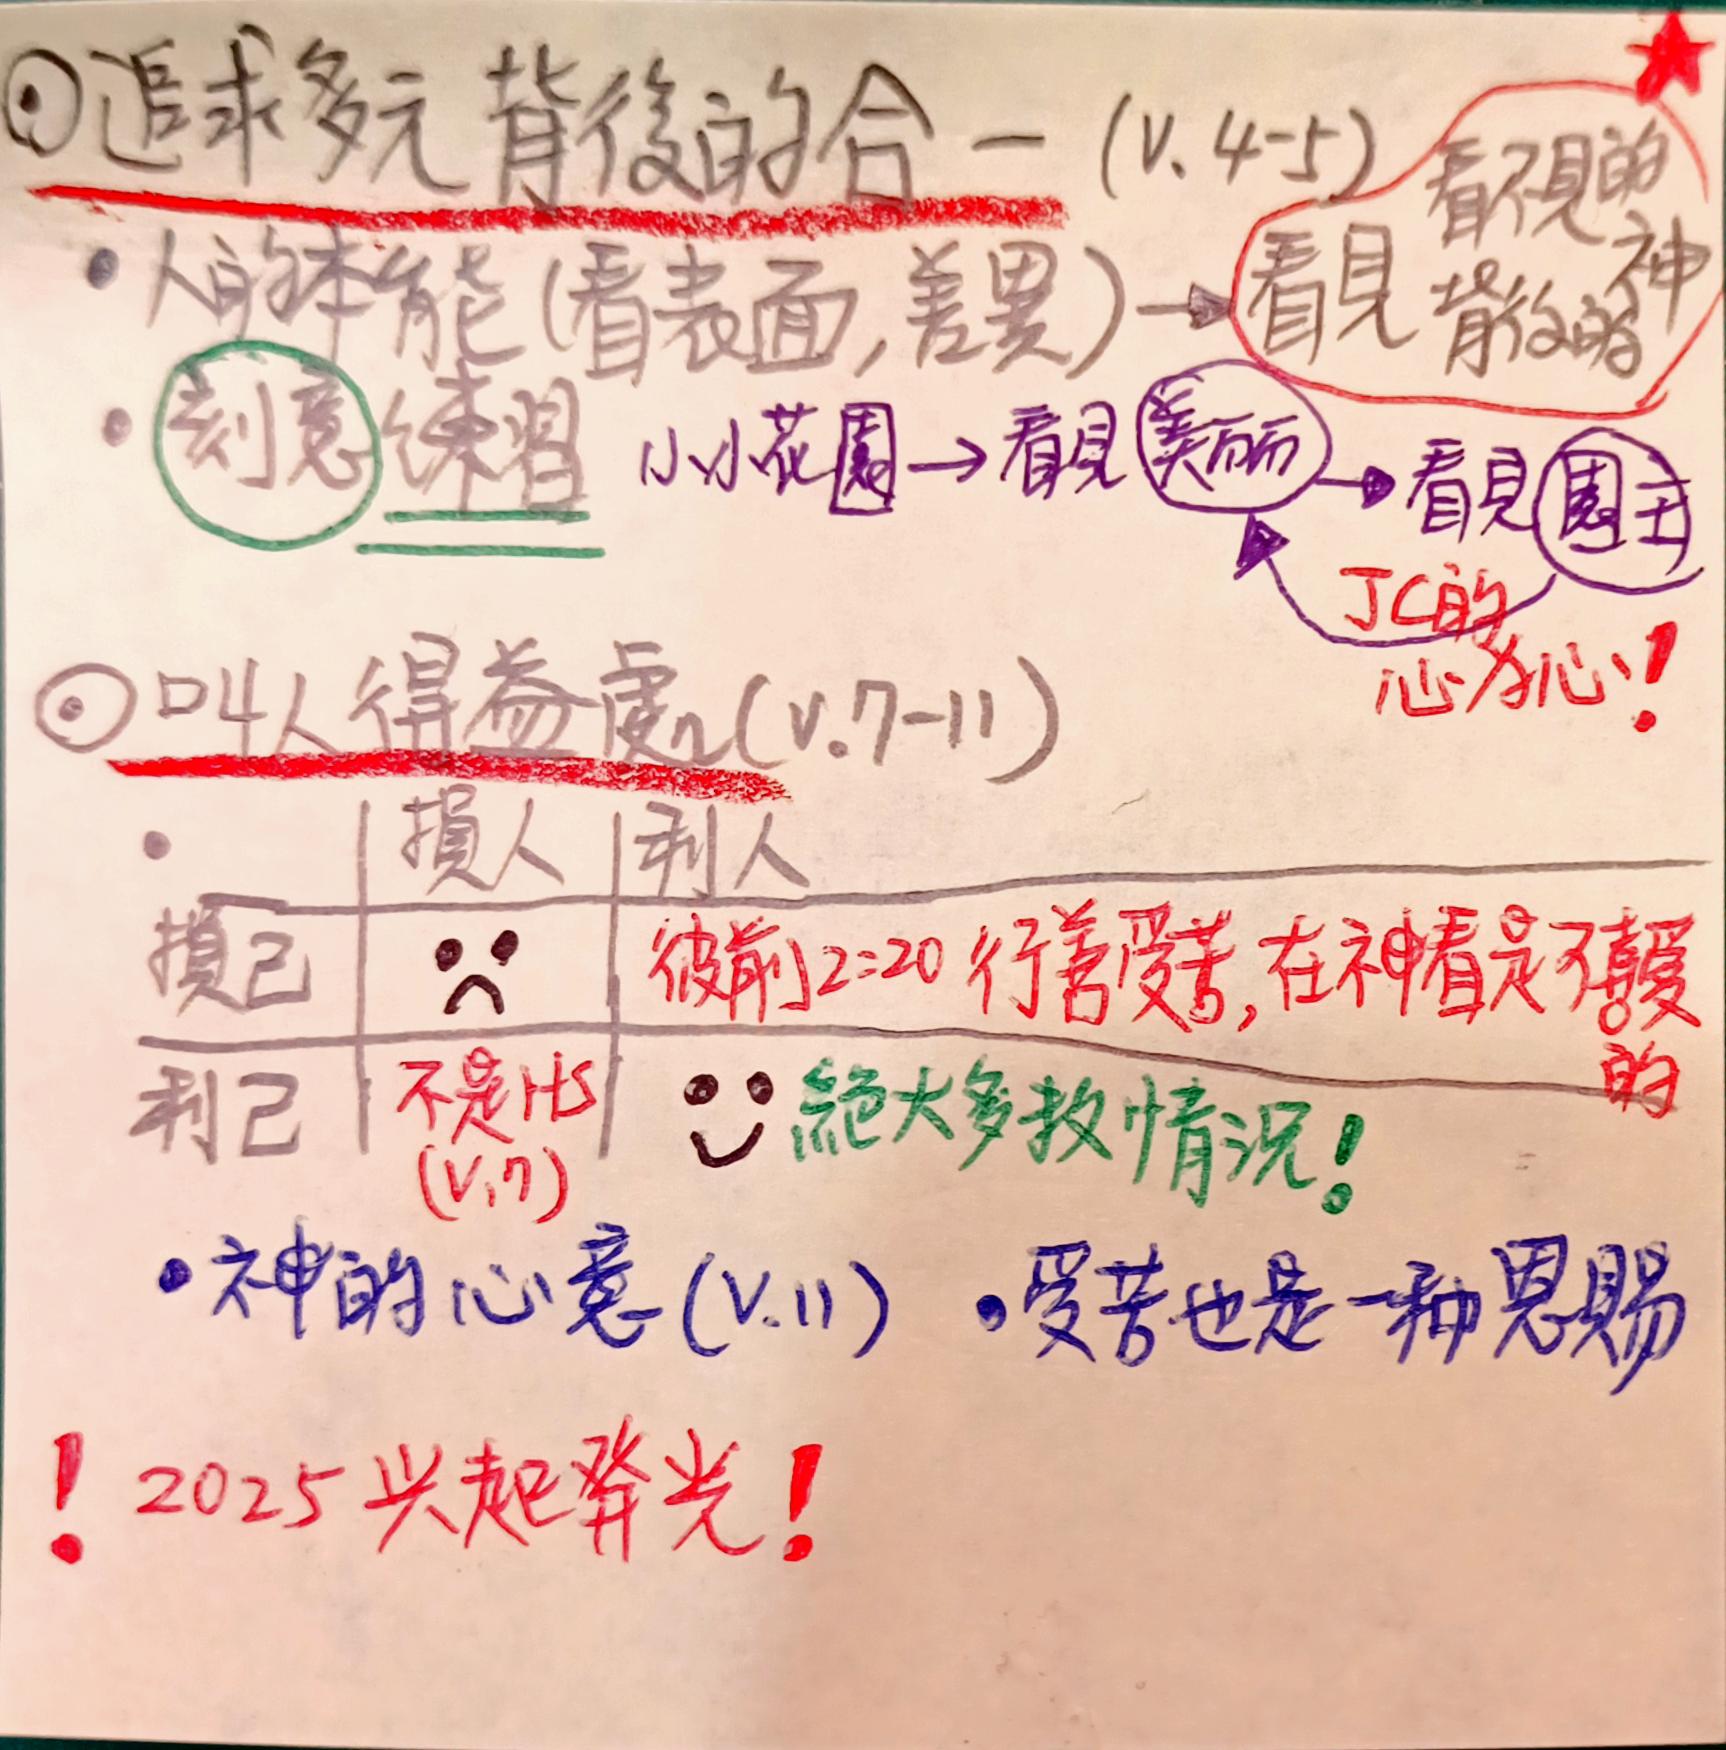 ⊙追求多元背後的合一 (V.4-5)
• 人的本能(看表面,差異) → 看見 看不見的 背後的 神
• 刻意練習 小小花園→看見美丽→看見園主
JC的
心為心!
⊙叫人得益處(V.7-11)
• 損人 利人
損己 彼前2:20 行善受苦,在神看是可喜愛的
利己 不是HS (V.7) 絕大多数情況!
• 神的心意(V.11) • 受苦也是一种恩賜
! 2025 兴起發光!